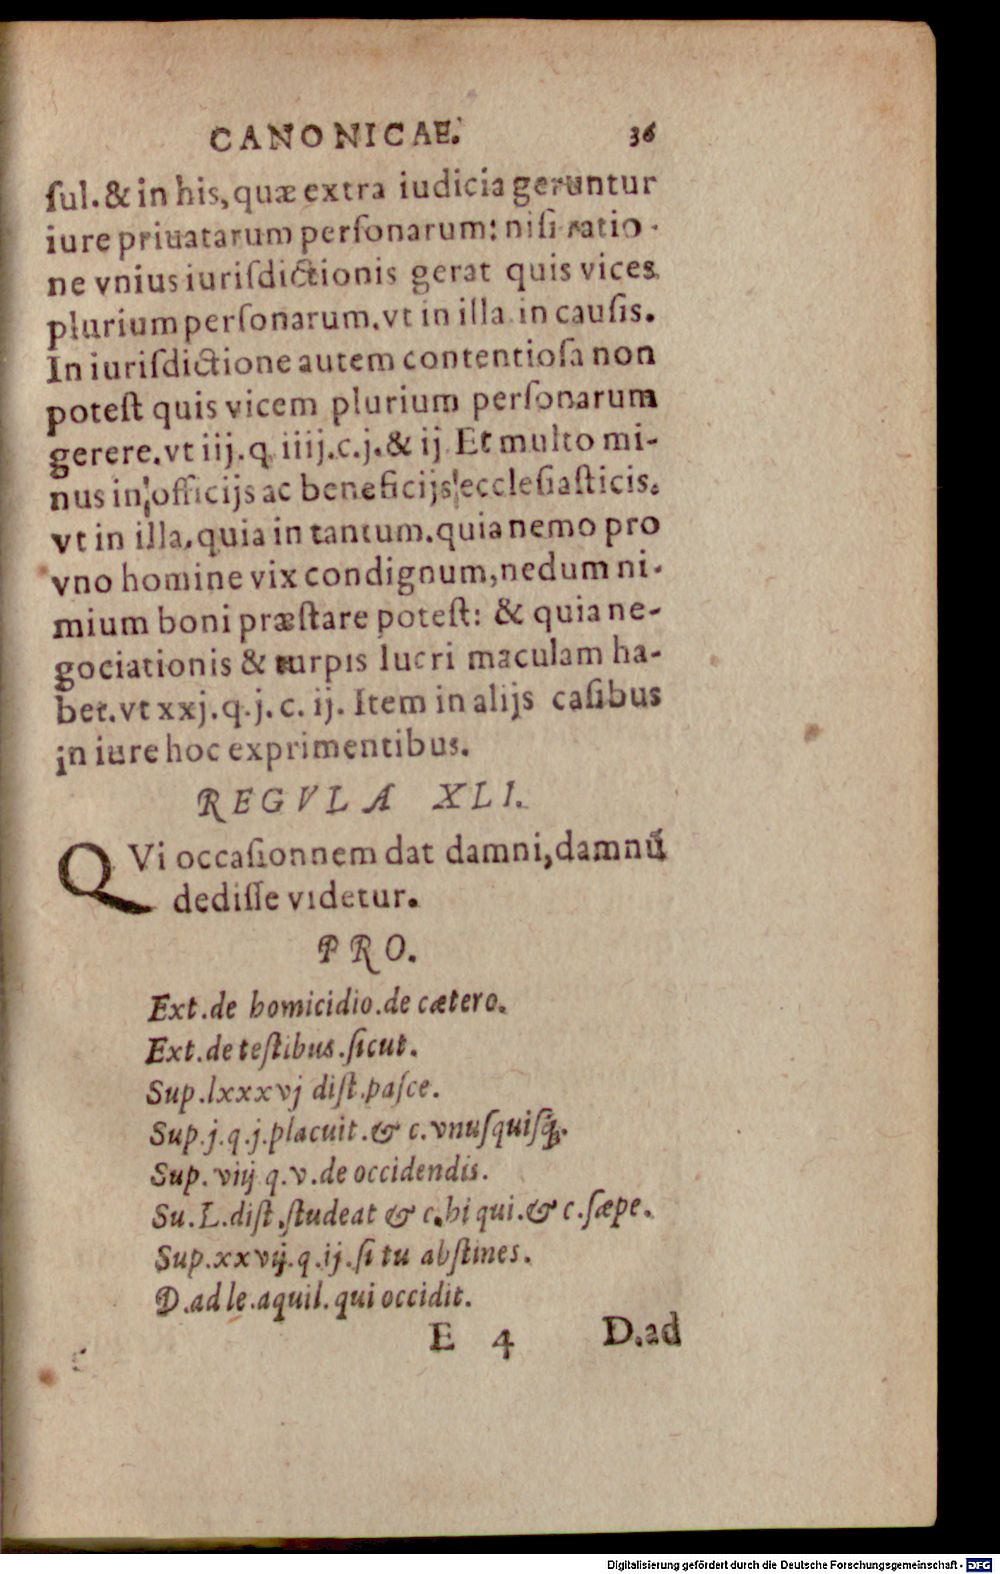 CANONICAE. 36
ſul. & in his, quæ extra iudicia geruntur
iure priuatarum perſonarum: niſi ratio-
ne vnius iuriſdictionis gerat quis vices
plurium perſonarum. vt in illa in cauſis.
In iuriſdictione autem contentioſa non
poteſt quis vicem plurium perſonarum
gerere. vt iij. q. iiij. c. j. & ij. Et multo mi-
nus in officijs ac beneficijs eccleſiaſticis.
vt in illa. quia in tantum. quia nemo pro
vno homine vix condignum, nedum ni-
mium boni præſtare poteſt: & quia ne-
gociationis & turpis lucri maculam ha-
bet. vt xxj. q. j. c. ij. Item in alijs caſibus
in iure hoc exprimentibus.
REGVLA XLI.
QVi occaſionnem dat damni, damnū
dediſſe videtur.
PRO.
Ext. de homicidio. de cætero.
Ext. de teſtibus. ſicut.
Sup. lxxxvj diſt. paſce.
Sup. j. q. j. placuit. & c. vnuſquiſq;.
Sup. viij q. v. de occidendis.
Su. L. diſt. ſtudeat & c. hi qui. & c. ſæpe.
Sup. xxvij. q. ij. ſi tu abſtines.
D. ad le. aquil. qui occidit.
E 4 D. ad
Digitalisierung gefördert durch die Deutsche Forschungsgemeinschaft - DFG